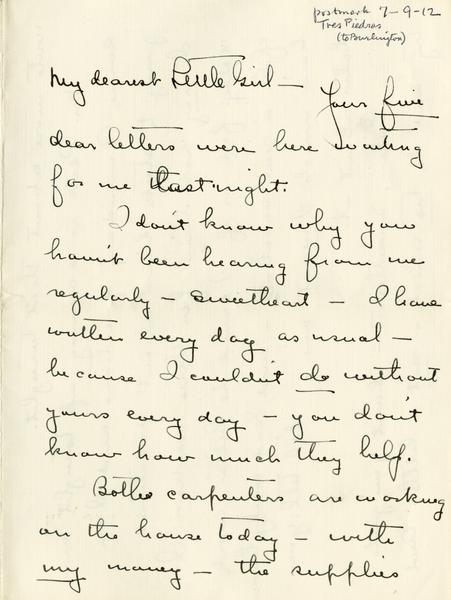 postmark 7-9-12
Tres Piedras
(to Burlington)
My dearest Little Girl —
Your five
dear letters were here waiting
for me last night.
I don't know why you
haven't been hearing from me
regularly — sweetheart — I have
written every day as usual —
because I couldn't do without
yours every day — you don't
know how much they help.
Both carpenters are working
on the house today — with
my money — the supplies